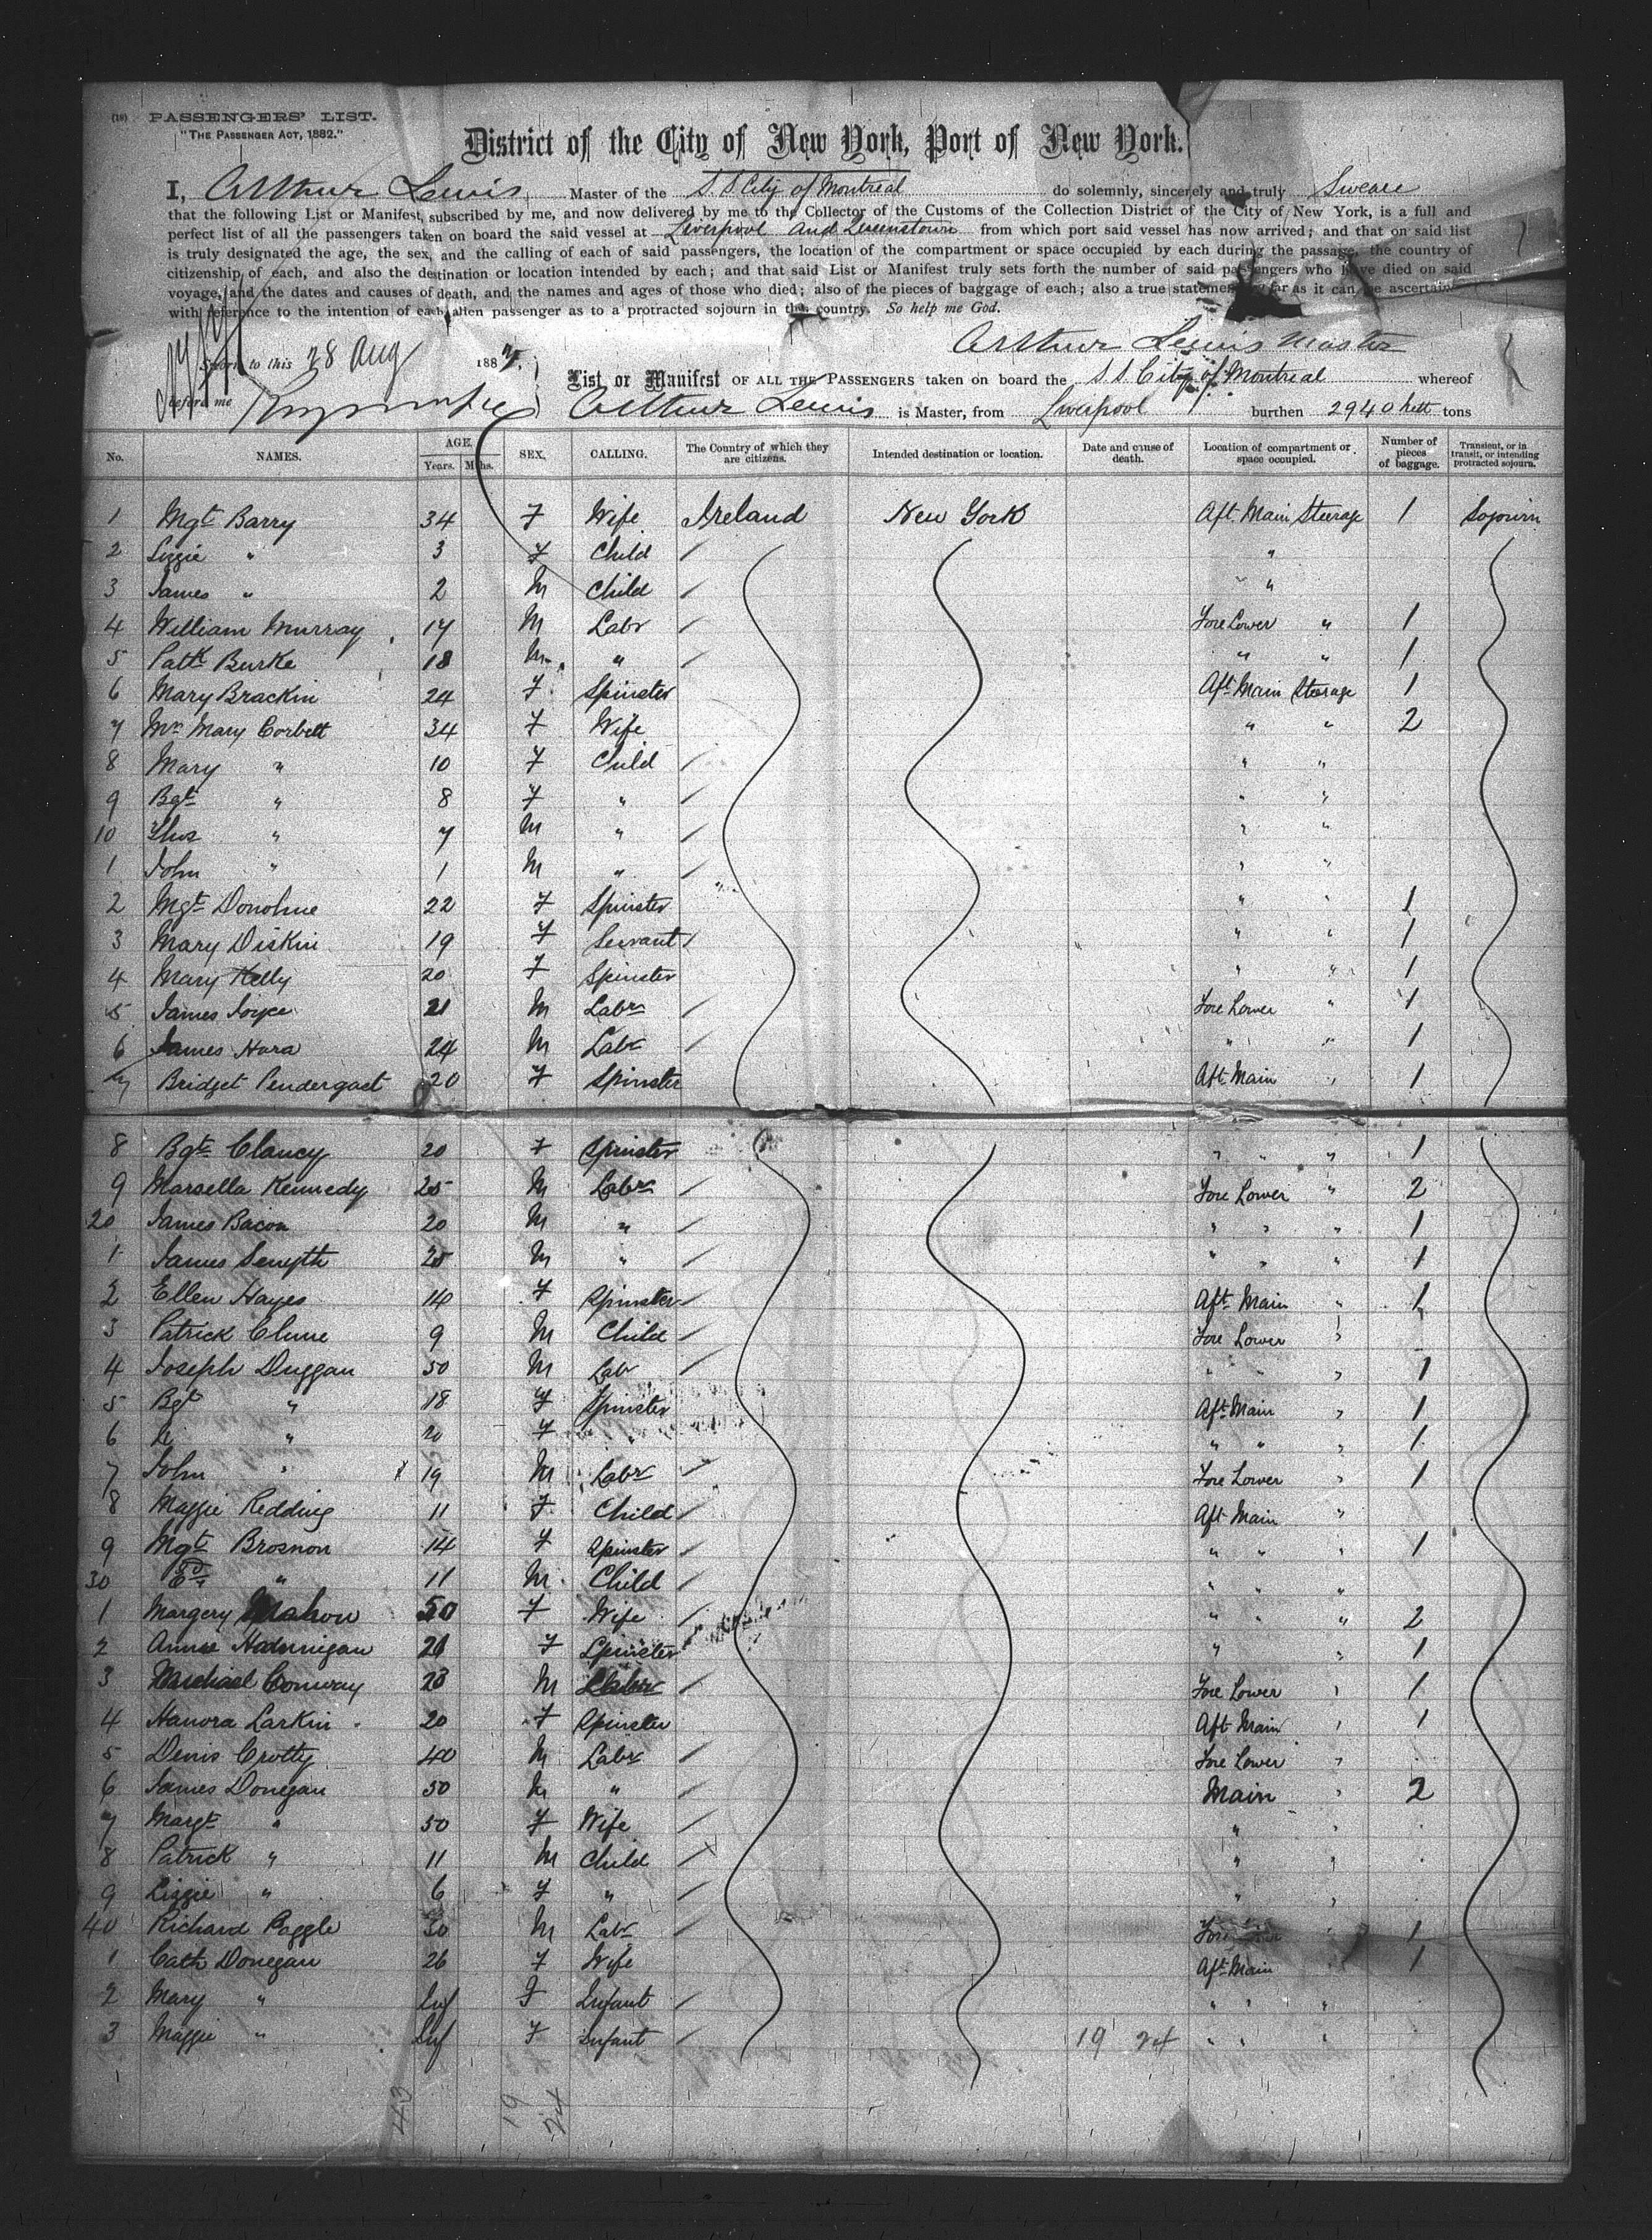 (18) PASSENGERS' LIST.
"THE PASSENGER ACT, 1882."
District of the City of New York, Port of New York.
I, Arthur Lewis, Master of the S.S. City of Montreal do solemnly, sincerely and truly Sweare
that the following List or Manifest, subscribed by me, and now delivered by me to the Collector of the Customs of the Collection District of the City of New York, is a full and
perfect list of all the passengers taken on board the said vessel at Liverpool and Queenstown from which port said vessel has now arrived; and that on said list
is truly designated the age, the sex, and the calling of each of said passengers, the location of the compartment or space occupied by each during the passage, the country of
citizenship of each, and also the destination or location intended by each; and that said List or Manifest truly sets forth the number of said passengers who have died on said
voyage, and the dates and causes of death, and the names and ages of those who died; also of the pieces of baggage of each; also a true statement far as it can be
with reference to the intention of each alien passenger as to a protracted sojourn in this country. So help me God.
Arthur Lewis Master
Sworn to this 28 Aug 188
before me
List or Manifest OF ALL THE PASSENGERS taken on board the S.S. City of Montreal whereof
Arthur Lewis is Master, from Liverpool burthen 2940 tons
No. NAMES. AGE. Years. Mths. SEX. CALLING. The Country of which they are citizens. Intended destination or location. Date and cause of death. Location of compartment or space occupied. Number of pieces of baggage. Transient, or in transit, or intending protracted sojourn.
1 Mgt Barry 34 F Wife Ireland New York Aft Main Steerage 1 Sojourn
2 Lizzie " 3 F Child "
3 James " 2 M Child " "
4 William Murray 17 M Labr Fore Lower " 1
5 Patk Burke 18 M " " " 1
6 Mary Brackin 24 F Spinster Aft Main Steerage 1
7 Mrs Mary Corbett 34 F Wife " " 2
8 Mary " 10 F Child " "
9 Bgt " 8 F " " "
10 Thos " 7 M " " "
1 John " 1 M " " "
2 Mgt Donohue 22 F Spinster " " 1
3 Mary Diskin 19 F Servant " " 1
4 Mary Kelly 20 F Spinster " " 1
5 James Joyce 21 M Labr Fore Lower " 1
6 James Hara 24 M Labr " " 1
7 Bridget Pendergast 20 F Spinster Aft Main " 1
8 Bgt Clancy 20 F Spinster " " " 1
9 Marsella Kennedy 25 M Labr Fore Lower " 2
20 James Bacon 20 M " " " " 1
1 James Smyth 25 M " " " " 1
2 Ellen Hayes 14 F Spinster Aft Main " 1
3 Patrick Clune 9 M Child Fore Lower "
4 Joseph Duggan 50 M Lab " " " 1
5 Bgt " 18 F Spinster Aft Main " 1
6 " 20 F " " " " 1
7 John " 19 M Labr Fore Lower " 1
8 Maggie Redding 11 F Child Aft Main "
9 Mgt Brosnon 14 F Spinster " " " 1
30 Ed " 11 M Child " " "
1 Margery Mahon 50 F Wife " " " 2
2 Annie 26 F Spinster " 1
3 Michael Conway 23 M Labr Fore Lower " 1
4 Hanora Larkin 20 F Spinster Aft Main " 1
5 Denis Crotty 40 M Labr Fore Lower "
6 James Donegan 50 M " Main " 2
7 Margt " 50 F Wife " "
8 Patrick " 11 M Child " "
9 Lizzie " 6 F " " "
40 Richard 30 M Labr Fore " 1
1 Cath Donegan 26 F Wife Aft Main " 1
2 Mary " Inf F Infant " " "
3 Maggie " Inf F Infant 19 24 " " "
43 19 24